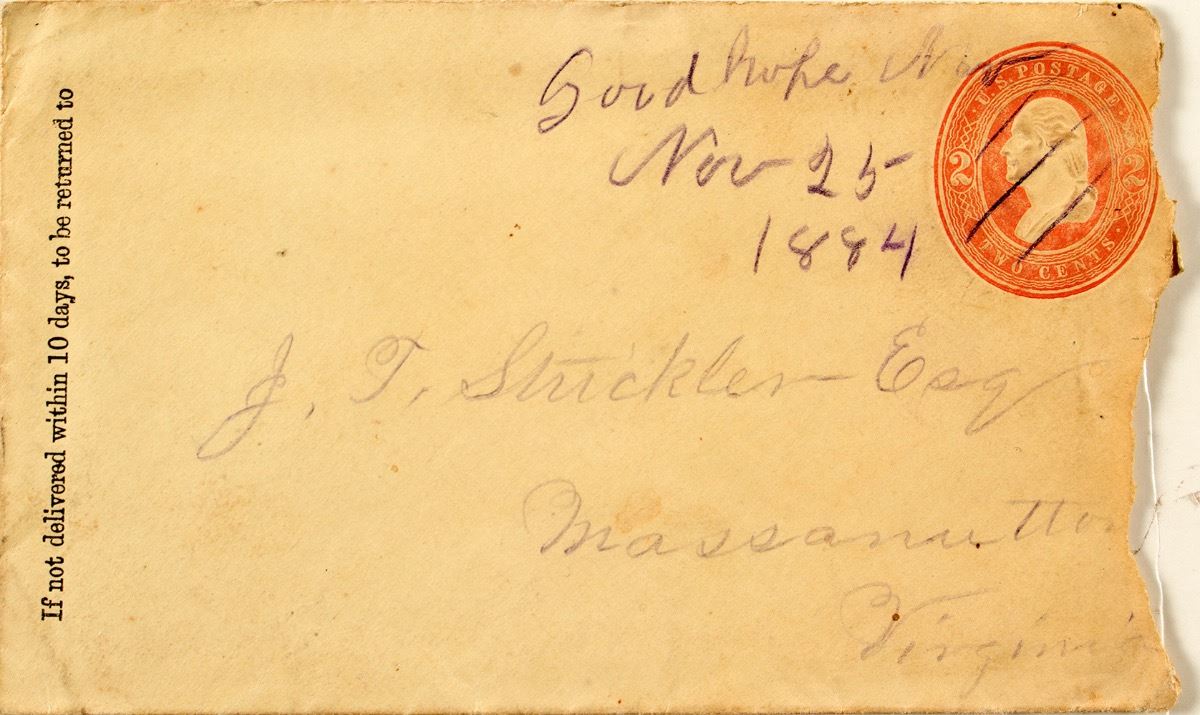 If not delivered within 10 days, to be returned to
Good hope
Nov 25
1884
U.S. POSTAGE
2 2
TWO CENTS
J. T. Strickler Esq
Massanutton
Virginia